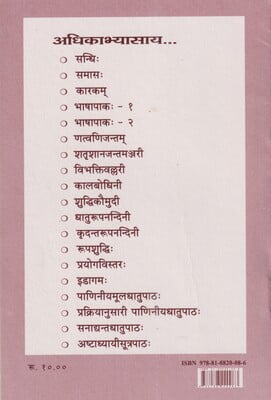 अधिकाभ्यासाय...
❍ सन्धिः
❍ समासः
❍ कारकम्
❍ भाषापाकः - १
❍ भाषापाकः - २
❍ णत्वणिजन्तम्
❍ शतृशानजन्तमञ्जरी
❍ विभक्तिवल्लरी
❍ कालबोधिनी
❍ शुद्धिकौमुदी
❍ धातुरूपनन्दिनी
❍ कृदन्तरूपनन्दिनी
❍ रूपशुद्धिः
❍ प्रयोगविस्तरः
❍ इडागमः
❍ पाणिनीयमूलधातुपाठः
❍ प्रक्रियानुसारी पाणिनीयधातुपाठः
❍ सनाद्यन्तधातुपाठः
❍ अष्टाध्यायीसूत्रपाठः
ISBN 978-81-8820-08-6
रू. १०.००